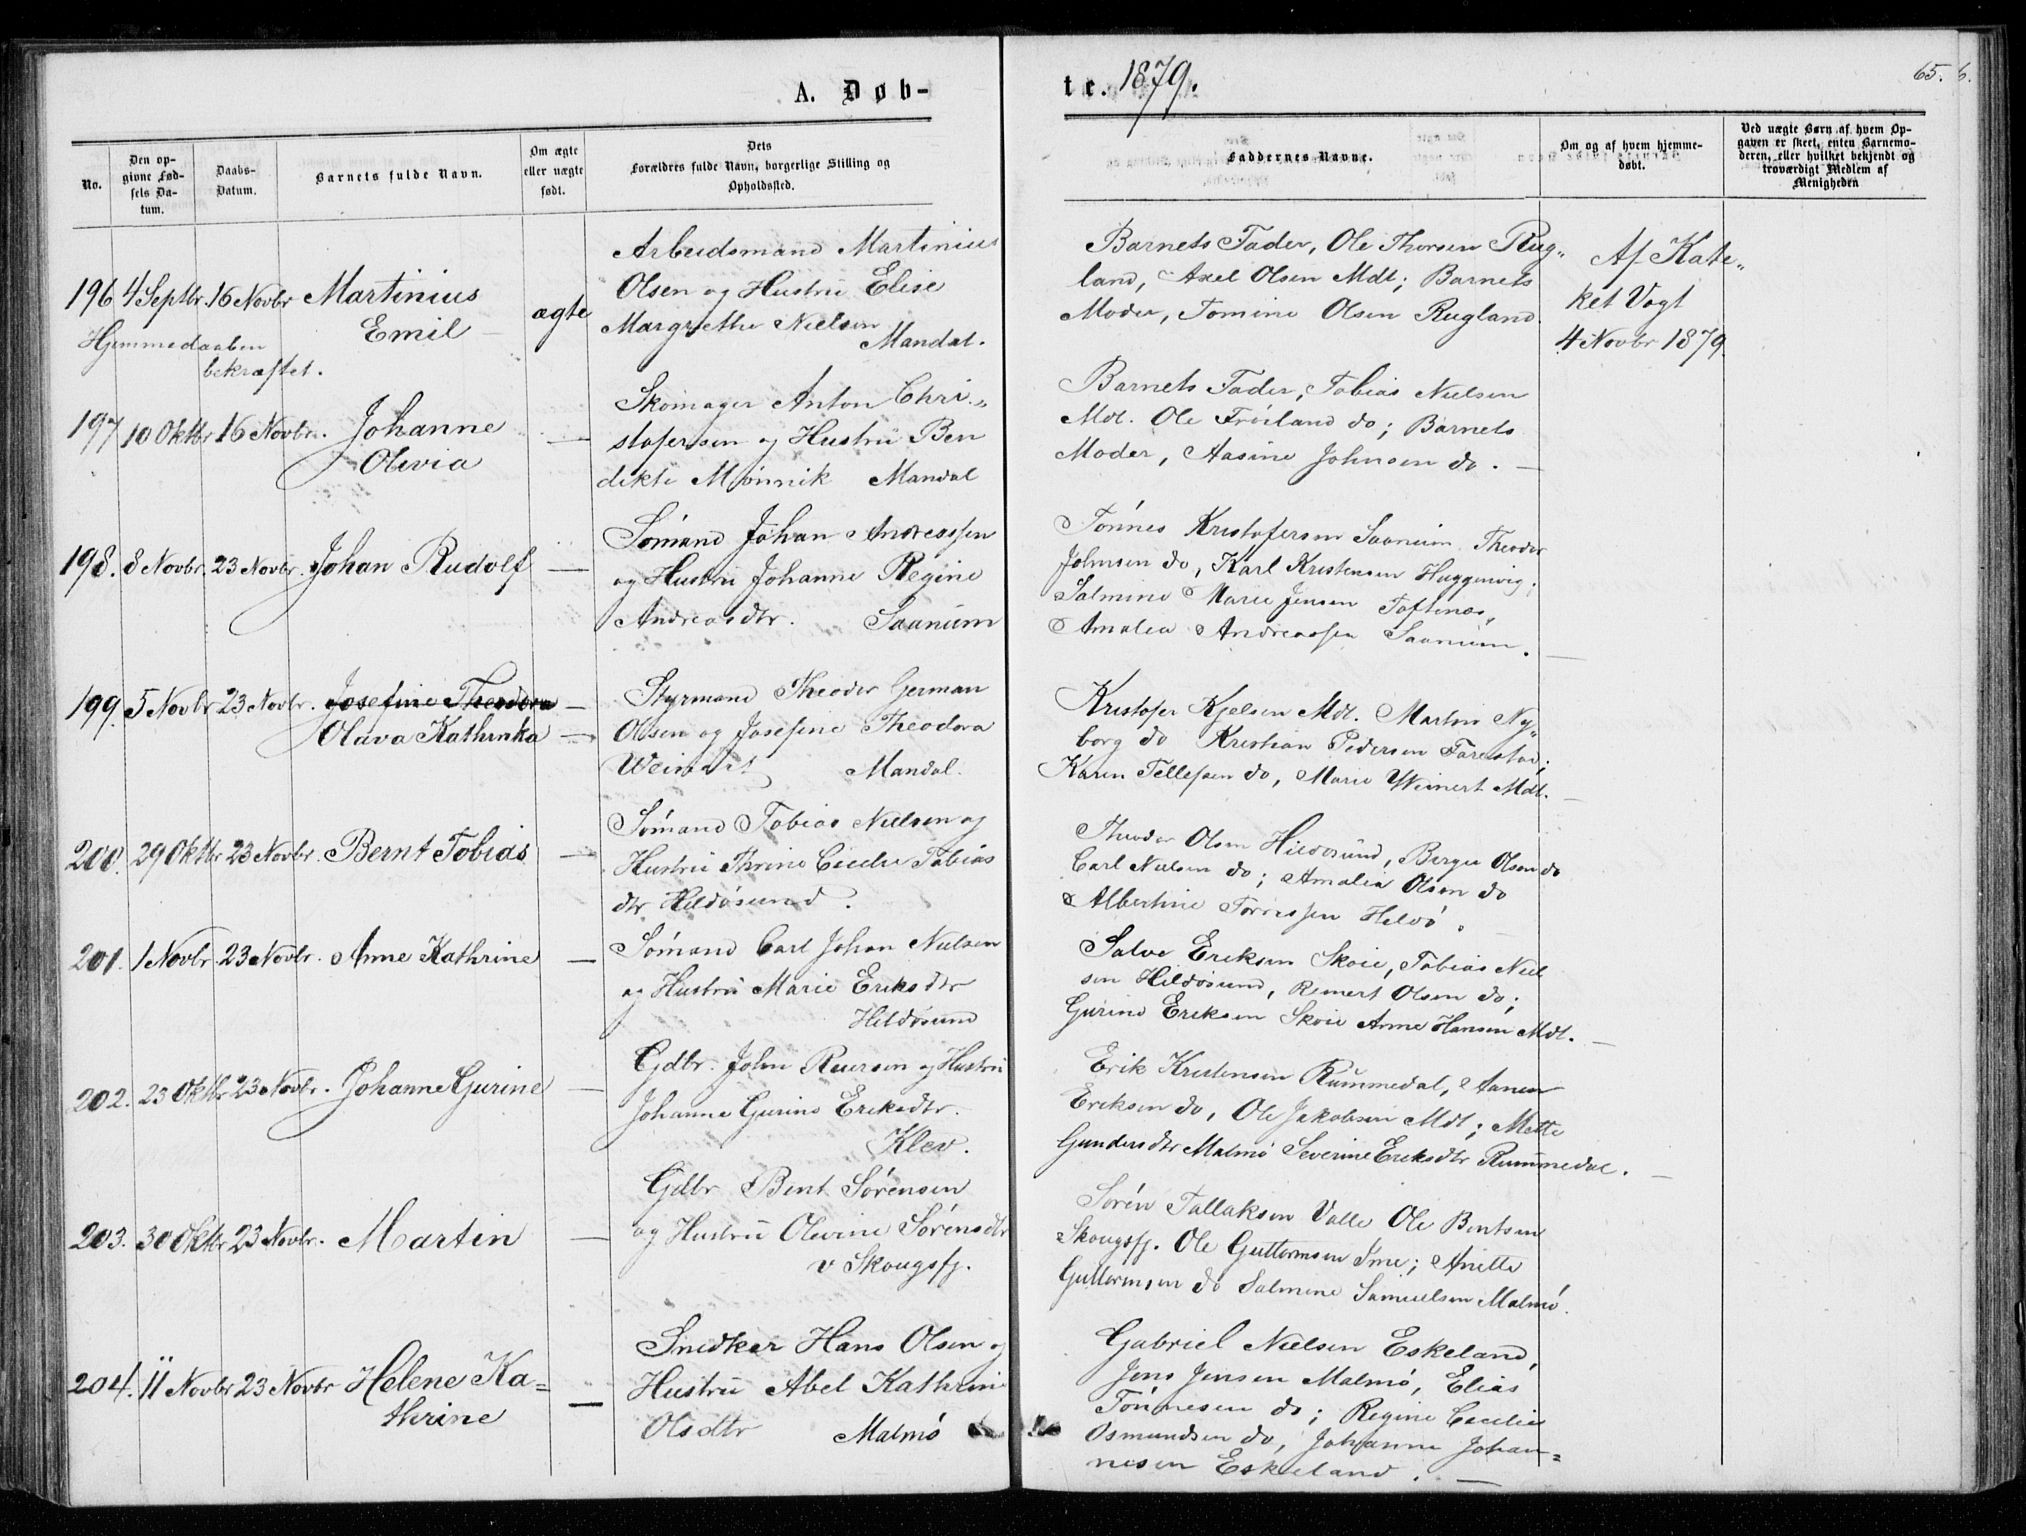 A. Døb-
te. 1879.
65. 6.
No.
Den op-
givne Fød-
sels Da-
tum.
Daabs-
Datum.
Barnets fulde Navn.
Om ægte
eller uægte
født.
Dets
Forældres fulde Navn, borgerlige Stilling og
Opholdssted.
Faddernes Navne.
Om og af hvem hjemme-
døbt.
Ved uægte Børn af hvem Op-
gaven er skeet, enten Barnemo-
deren, eller hvilket bekjendt og
troværdigt Medlem af
Menigheden
196 4 Septbr. 16 Novbr Martinius
Emil
Hjemmedaaben
bekræftet.
ægte
Arbeidsmand Martinius
Olsen og Hustru Elise
Margrethe Nielsen
Mandal.
Barnets Fader, Ole Thorsen Rug„
land, Axel Olsen Mdl; Barnets
Moder, Tomine Olsen Rugland.
Af Kate„
ket Vogt
4 Novbr 1879
197 10 Oktbr 16 Novbr. Johanne
Olivia
—
Skomager Anton Chri„
stofersen og Hustru Ben
dikte Mönnik Mandal
Barnets Fader, Tobias Nielsen
Mdl. Ole Fröiland do; Barnets
Moder, Aasine Johnsen do. —
198. 8 Novbr. 23 Novbr. Johan Rudolf —
Sømand Johan Andreassen
og Hustru Johanne Regine
Andreasdtr. Saanum
Tønnes Kristofersen Saanum Theodor
Johnsen do, Karl Kristensen Huggenvig;
Salmine Marie Jensen Toftenæs,
Amalia Andreassen Saanum. —
199. 5 Novbr 23 Novbr. Josefine Theodora —
Olava Kathinka —
Styrmand Theodor German
Olsen og Josefine Theodora
Weinert Mandal.
Kristofer Kjelsen Mdl. Martin Ny„
borg do Kristian Pedersen Farestad;
Karen Tellefsen do, Marie Weinert Mdl. —
200. 29 Oktbr 23 Novbr. Bernt Tobias —
Sømand Tobias Nielsen og
Hustru Thrine Cecilie Tobias
dtr Hildøsund.
Theodor Olsen Hildøsund, Birger Olsen do
Carl Nielsen do; Amalia Olsen do
Albertine Torrissen Hildø.
201. 1 Novbr 23 Novbr. Anne Kathrine —
Sømand Carl Johan Nielsen
og Hustru Marie Eriksdtr
Hildøsund
Salve Eriksen Skoie, Tobias Niel
sen Hildøsund, Reinert Olsen do;
Gurine Eriksen Skoie Anne Hansen Mdl. —
202. 23 Oktbr 23 Novbr. Johanne Gurine —
Gdbr. John Reiersen og Hustru
Johanne Gurine Eriksdtr.
Klev.
Erik Kristensen Rummedal, Aanen
Eriksen do, Ole Jakobsen Mdl; Mette
Gundersdtr Malmø Severine Eriksdtr Rummedal. —
203. 30 Oktbr 23 Novbr. Martin —
Gdbr Bent Sørensen
og Hustru Olevine Sørensdtr
v Skougsfj.
Søren Tallaksen Valle Ole Bentsen
Skougsfj. Ole Guttormsen Ime; Anette
Guttormsen do Salmine Samuelsen Malmø.
204. 11 Novbr 23 Novbr Helene Ka=
thrine —
Snedker Hans Olsen og
Hustru Abel Kathrine
Olsdtr Malmø
Gabriel Nielsen Eskeland,
Jens Jensen Malmø, Elias
Tønnesen do; Regine Cecilie
Osmundsen do, Johanne Johan=
nesen Eskeland. —